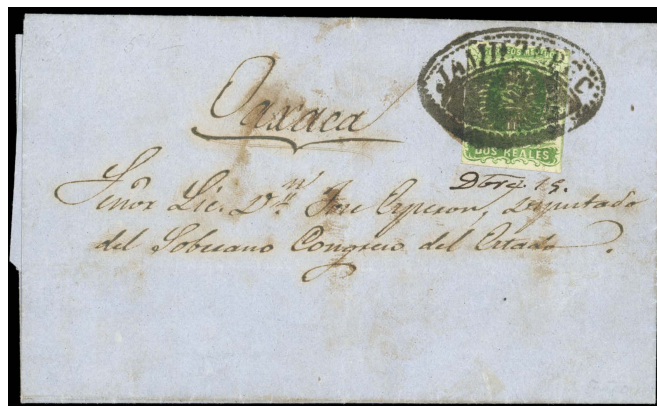 JAMILTEPEC
DOS REALES
Oaxaca
Dbre 18.
Señor Lic. Dn José Esperon, Diputado
del Soberano Congreso del Estado.